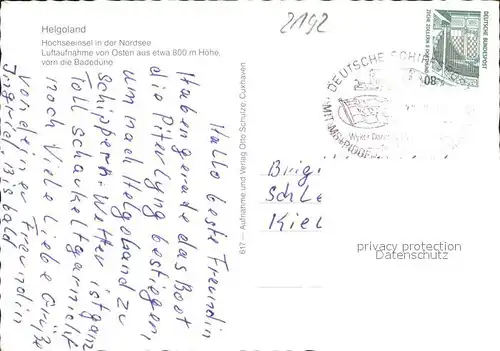 Helgoland
Hochseeinsel in der Nordsee
Luftaufnahme von Osten aus etwa 800 m Höhe,
vorn die Badedüne
2192
Hallo beste Freundin
Haben gerade das Boot
die Piterlyng bestiegen,
um nach Helgoland zu
Schippern. Wetter ist ganz
Toll schaukelt gar nicht
noch Viele Liebe Grüße
von deiner Freundin
Ingrid. Bis bald
617 — Aufnahme und Verlag Otto Schulze Cuxhaven
DEUTSCHE
MIT
Wyker
DEUTSCHE BUNDESPOST
80
Brig
Schle
Kiel
privacy protection
Datenschutz